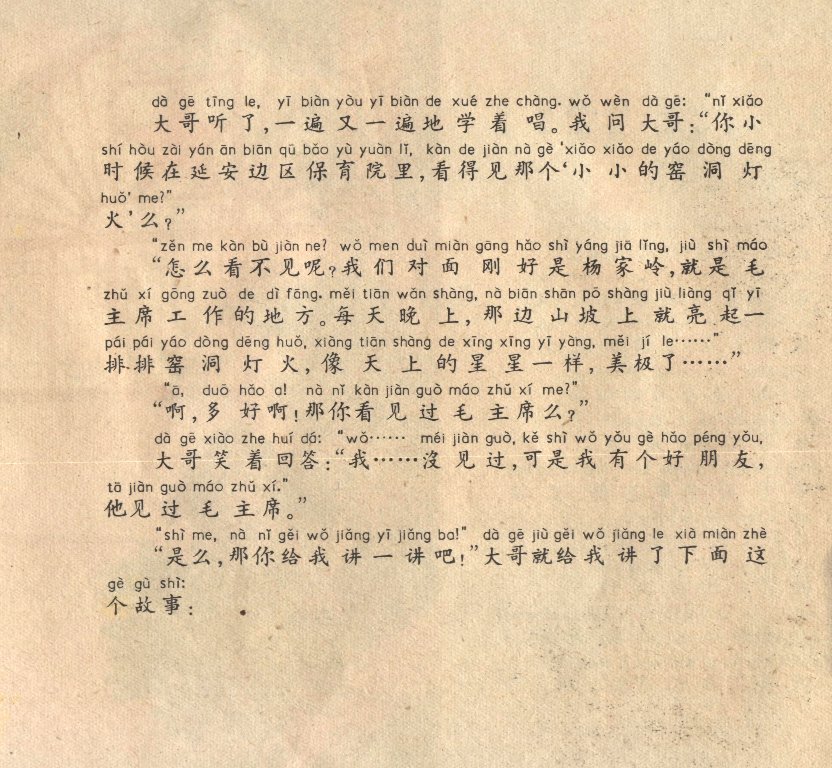 dà gē tīng le, yī biàn yòu yī biàn de xué zhe chàng. wǒ wèn dà gē: “nǐ xiǎo
大哥听了,一遍又一遍地学着唱。我问大哥:“你小
shí hòu zài yán ān biān qū bǎo yù yuàn lǐ, kàn de jiàn nà gè ‘xiǎo xiǎo de yáo dòng dēng
时候在延安边区保育院里,看得见那个‘小小的窑洞灯
huǒ’ me?”
火’么?”
“zěn me kàn bù jiàn ne? wǒ men duì miàn gāng hǎo shì yáng jiā lǐng, jiù shì máo
“怎么看不见呢?我们对面刚好是杨家岭,就是毛
zhǔ xí gōng zuò de dì fāng. měi tiān wǎn shàng, nà biān shān pō shàng jiù liàng qǐ yī
主席工作的地方。每天晚上,那边山坡上就亮起一
pái pái yáo dòng dēng huǒ, xiàng tiān shàng de xīng xīng yī yàng, měi jí le……”
排排窑洞灯火,像天上的星星一样,美极了……”
“ā, duō hǎo a! nà nǐ kàn jiàn guò máo zhǔ xí me?”
“啊,多好啊!那你看见过毛主席么?”
dà gē xiào zhe huí dá: “wǒ…… méi jiàn guò, kě shì wǒ yǒu gè hǎo péng yǒu,
大哥笑着回答:“我……沒见过,可是我有个好朋友,
tā jiàn guò máo zhǔ xí.”
他见过毛主席。”
“shì me, nà nǐ gěi wǒ jiǎng yī jiǎng ba!” dà gē jiù gěi wǒ jiǎng le xià miàn zhè
“是么,那你给我讲一讲吧!”大哥就给我讲了下面这
gè gù shì:
个故事: